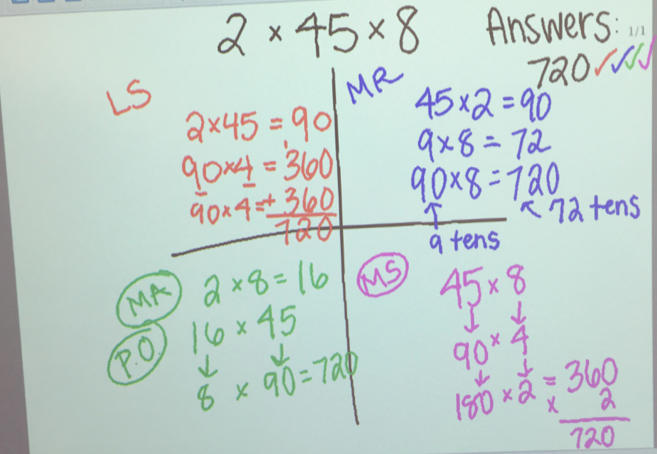 2 × 45 × 8
Answers: 1/1
720 ✓✓✓✓
LS
2×45 = 90
90×4 = 360
90×4 = + 360
720
MR
45×2 = 90
9×8 = 72
90×8 = 720
↑ ↖ 72 tens
9 tens
MA
P.O.
2 × 8 = 16
16 × 45
↓ ↓
8 × 90 = 720
MS
45 × 8
↓ ↓
90 × 4
↓ ↓
180 × 2 = 360
× 2
720